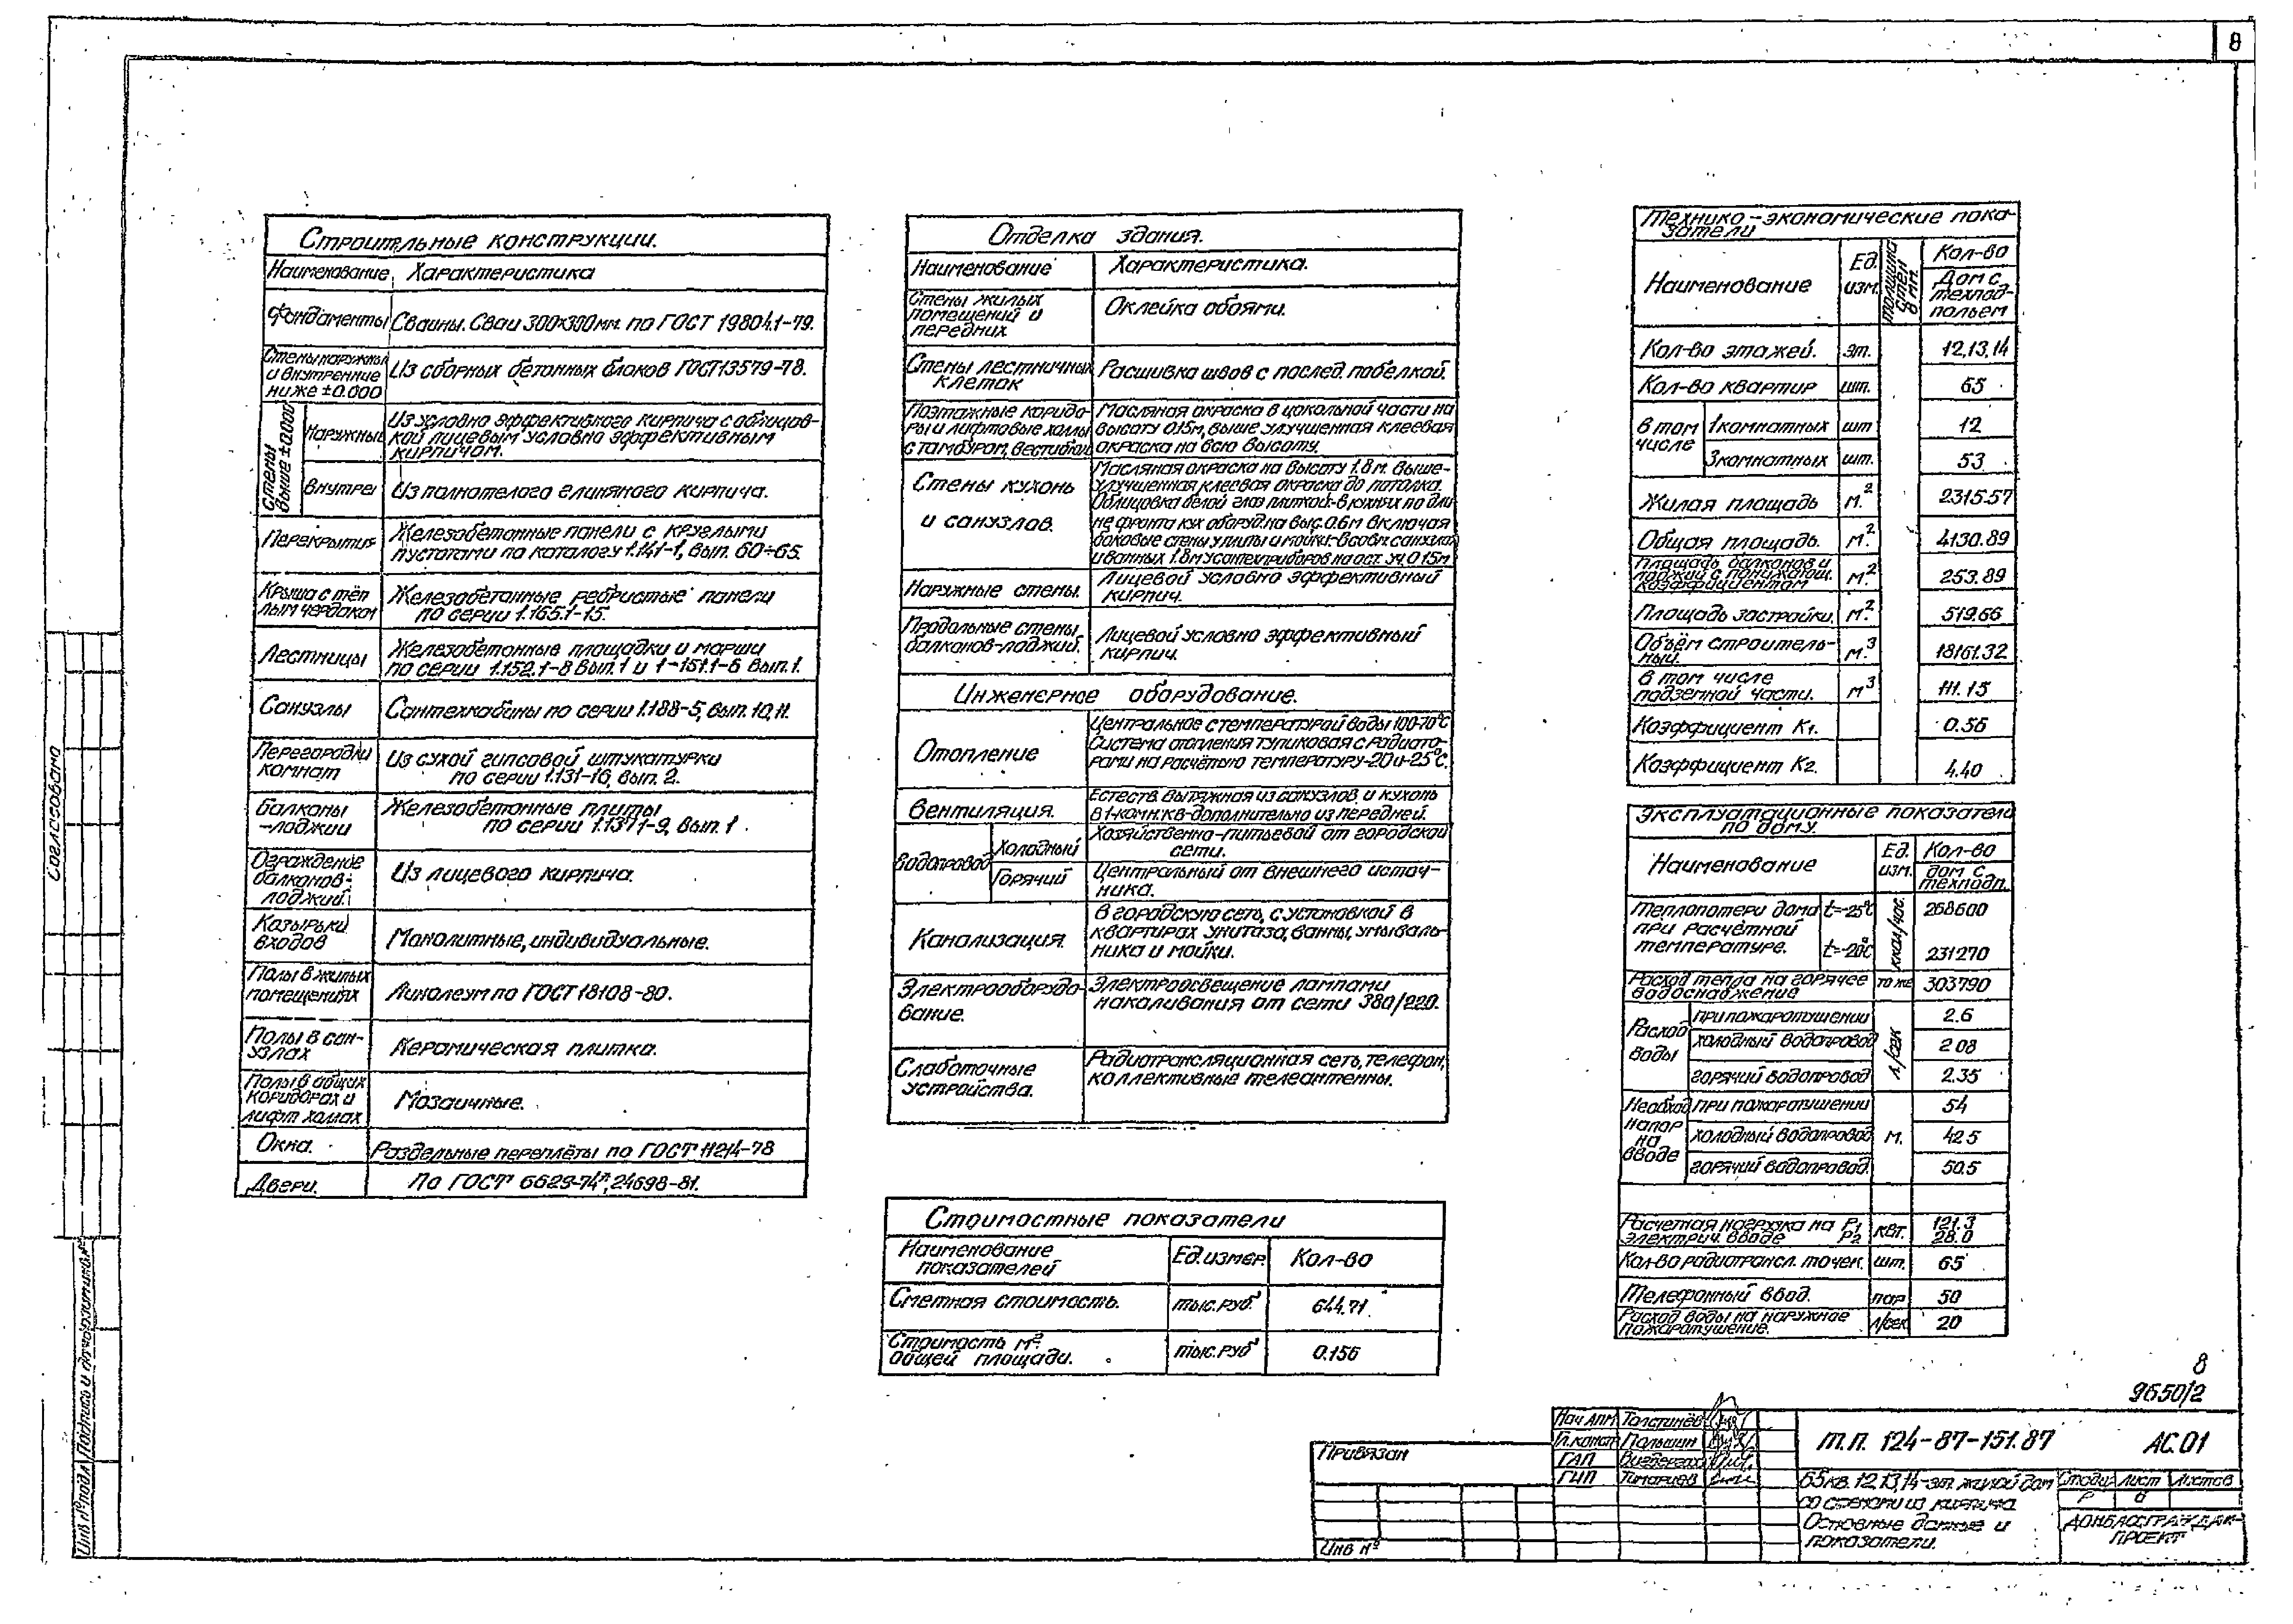 8
Строительные конструкции.
Наименование Характеристика
Фундаменты Свайны. Сваи 300х300мм. по ГОСТ 19804.1-79.
Стены наружные
и внутренние
ниже ±0.000
Из сборных бетонных блоков ГОСТ 13579-78.
Стены
выше ±0.000
Наружные
Из условно эффективного кирпича с облицов-
кой лицевым условно эффективным
кирпичом.
Внутрен
Из полнотелого глиняного кирпича.
Перекрытия
Железобетонные панели с круглыми
пустотами по каталогу 1.141-1, вып. 60÷65.
Крыша с тёп
лым чердаком
Железобетонные ребристые панели
по серии 1.165.1-15.
Лестницы
Железобетонные площадки и марши
по серии 1.152.1-8 вып.1 и 1-151.1-6 вып.1.
Санузлы
Сантехкабины по серии 1.188-5, вып. 10,11.
Перегородки
комнат
Из сухой гипсовой штукатурки
по серии 1.131-16, вып. 2.
Балконы
-лоджии
Железобетонные плиты
по серии 1.137.1-9, вып. 1.
Ограждение
балконов-
лоджий.
Из лицевого кирпича.
Козырьки
входов
Монолитные, индивидуальные.
Полы в жилых
помещениях
Линолеум по ГОСТ 18108-80.
Полы в сан-
узлах
Керамическая плитка.
Полы в общих
коридорах и
лифт холлах
Мозаичные.
Окна.
Раздельные переплёты по ГОСТ 11214-78
Двери.
По ГОСТ 6629-74*, 24698-81.
Отделка здания.
Наименование Характеристика.
Стены жилых
помещений и
передних
Оклейка обоями.
Стены лестничных
клеток
Расшивка швов с послед. побелкой.
Поэтажные коридо-
ры и лифтовые холлы
с тамбуром, вестибюл
Масляная окраска в цокольной части на
высоту 0.15м, выше улучшенная клеевая
окраска на всю высоту.
Стены кухонь
и санузлов.
Масляная окраска на высоту 1.8м. Выше-
улучшенная клеевая окраска до потолка.
Облицовка белой глаз плиткой:-в кухнях по дли
не фронта кух оборуд на выс. 0.6м включая
боковые стены у плиты и мойки;-в совм. санузлах
и ванных 1.8м У сантехприборов на ост. уч. 0.15м
Наружные стены.
Лицевой условно эффективный
кирпич.
Продольные стены
балконов-лоджий.
Лицевой условно эффективный
кирпич.
Инженерное оборудование.
Отопление
Центральное с температурой воды 100-70°С
Система отопления тупиковая с радиато-
рами на расчётную температуру-20 и-25°С.
Вентиляция.
Естеств. вытяжная из санузлов и кухонь
В 1-комн.кв-дополнительно из передней.
Водопровод
Холодный
Хозяйственно-питьевой от городской
сети.
Горячий
Центральный от внешнего источ-
ника.
Канализация.
В городскую сеть, с установкой в
квартирах унитаза, ванны, умываль-
ника и мойки.
Электрооборудо-
вание.
Электроосвещение лампами
накаливания от сети 380/220.
Слаботочные
устройства.
Радиотрансляционная сеть, телефон,
коллективные телеантенны.
Стоимостные показатели
Наименование
показателей
Ед. измер. Кол-во
Сметная стоимость. тыс.руб 644.71.
Стоимость м²
общей площади.
тыс.руб 0.156
Технико-экономические пока-
затели
Наименование
Ед.
изм.
Толщина
стен
в мм.
Кол-во
Дом с
техпод-
польем
Кол-во этажей. эт. 12,13,14
Кол-во квартир шт. 65
в том
числе
1комнатных шт 12
3комнатных шт. 53
Жилая площадь м.² 2315.57
Общая площадь. м.² 4130.89
Площадь балконов и
лоджий с понижающ.
коэффициентом
м.² 253.89
Площадь застройки. м.² 519.66
Объём строитель-
ный.
м.³ 18161.32
в том числе
подземной части.
м³ 1111.15
Коэффициент К₁. 0.56
Коэффициент К₂. 4.40
Эксплуатационные показатели
по дому.
Наименование
Ед.
изм.
Кол-во
дом с
техподп.
Теплопотери дома
при расчётной
температуре.
t=-25°С 268600
t=-20°С 231270
ккал/час.
Расход тепла на горячее
водоснабжение
то же 303790
Расход
воды
при пожаротушении 2.6
холодный водопровод 2 08
горячий водопровод 2.35
л/сек
Необход
напор
на
вводе
при пожаротушении 54
холодный водопровод м. 42 5
горячий водопровод. 50.5
Расчетная нагрузка на Р₁ 121.3
электрич. вводе Р₂ квт. 28.0
Кол-во радиотрансл. точек. шт. 65
Телефонный ввод. пар 50
Расход воды на наружное
пожаротушение.
л/сек 20
8
9650/2
Согласовано
Инв №подл Подпись и дата
Привязан
Инв №
Нач АПМ
Гл.констр
ГАП
ГИП
Т.П. 124-87-151.87 АС.01
65кв. 12,13,14-эт. жилой дом
со стенами из кирпича
Основные данные и
показатели.
Стади Лист Листов
Р 8
ДОНБАССГРАЖДАН-
ПРОЕКТ